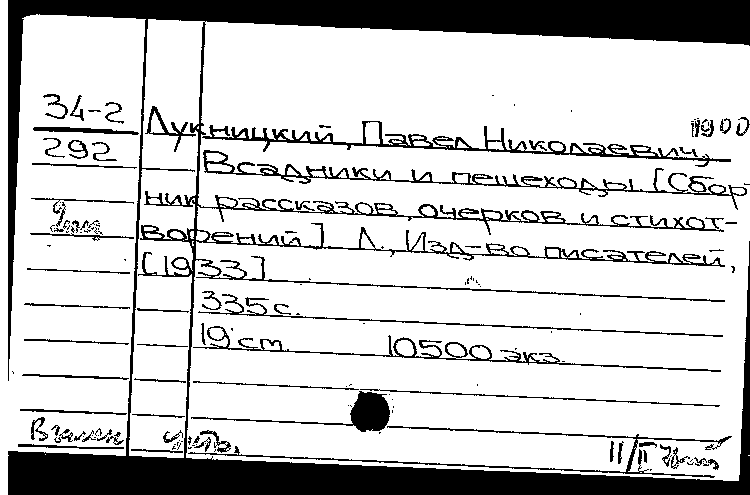 34-2
Лукницкий, Павел Николаевич, 1900
292
Всадники и пешеходы. [Сбор-
ник рассказов, очерков и стихот-
ворений] Л., Изд-во писателей,
[1933]
335 с.
19 см. 10500 экз.
Взамен II/II